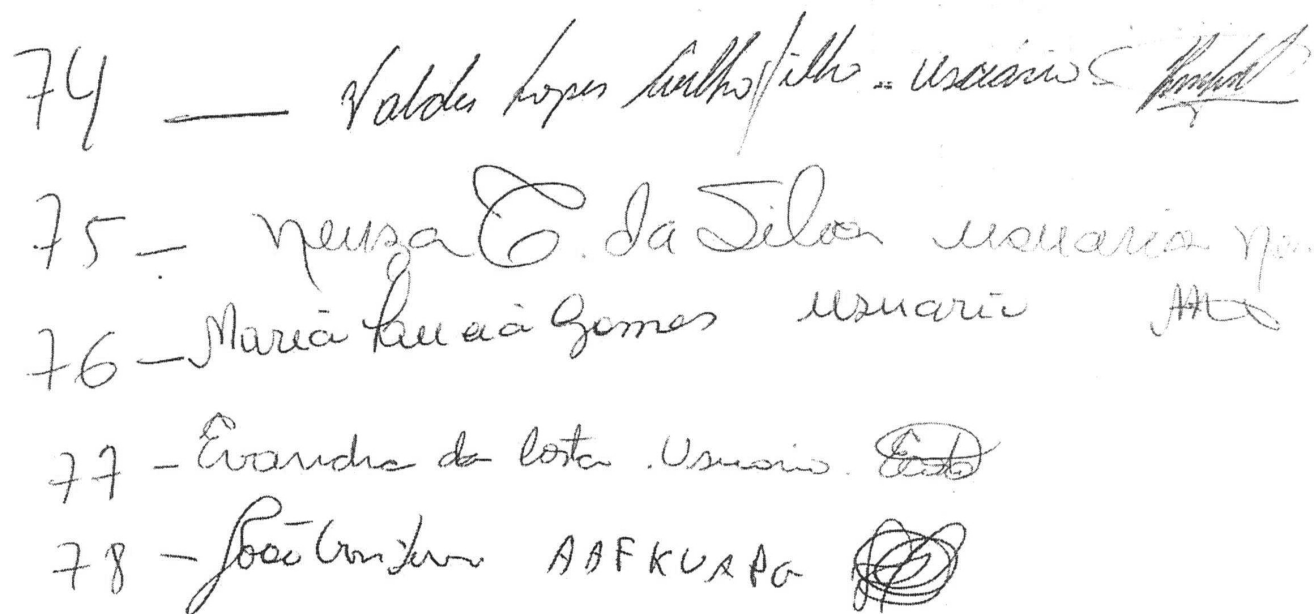 74 — Valdes Lopes Coelho filho - usuário
75 - Neuza C. da Silva usuaria
76 - Maria Gomes usuario
77 - Evandra da Costa . Usuario .
78 - João AAFKUAPG